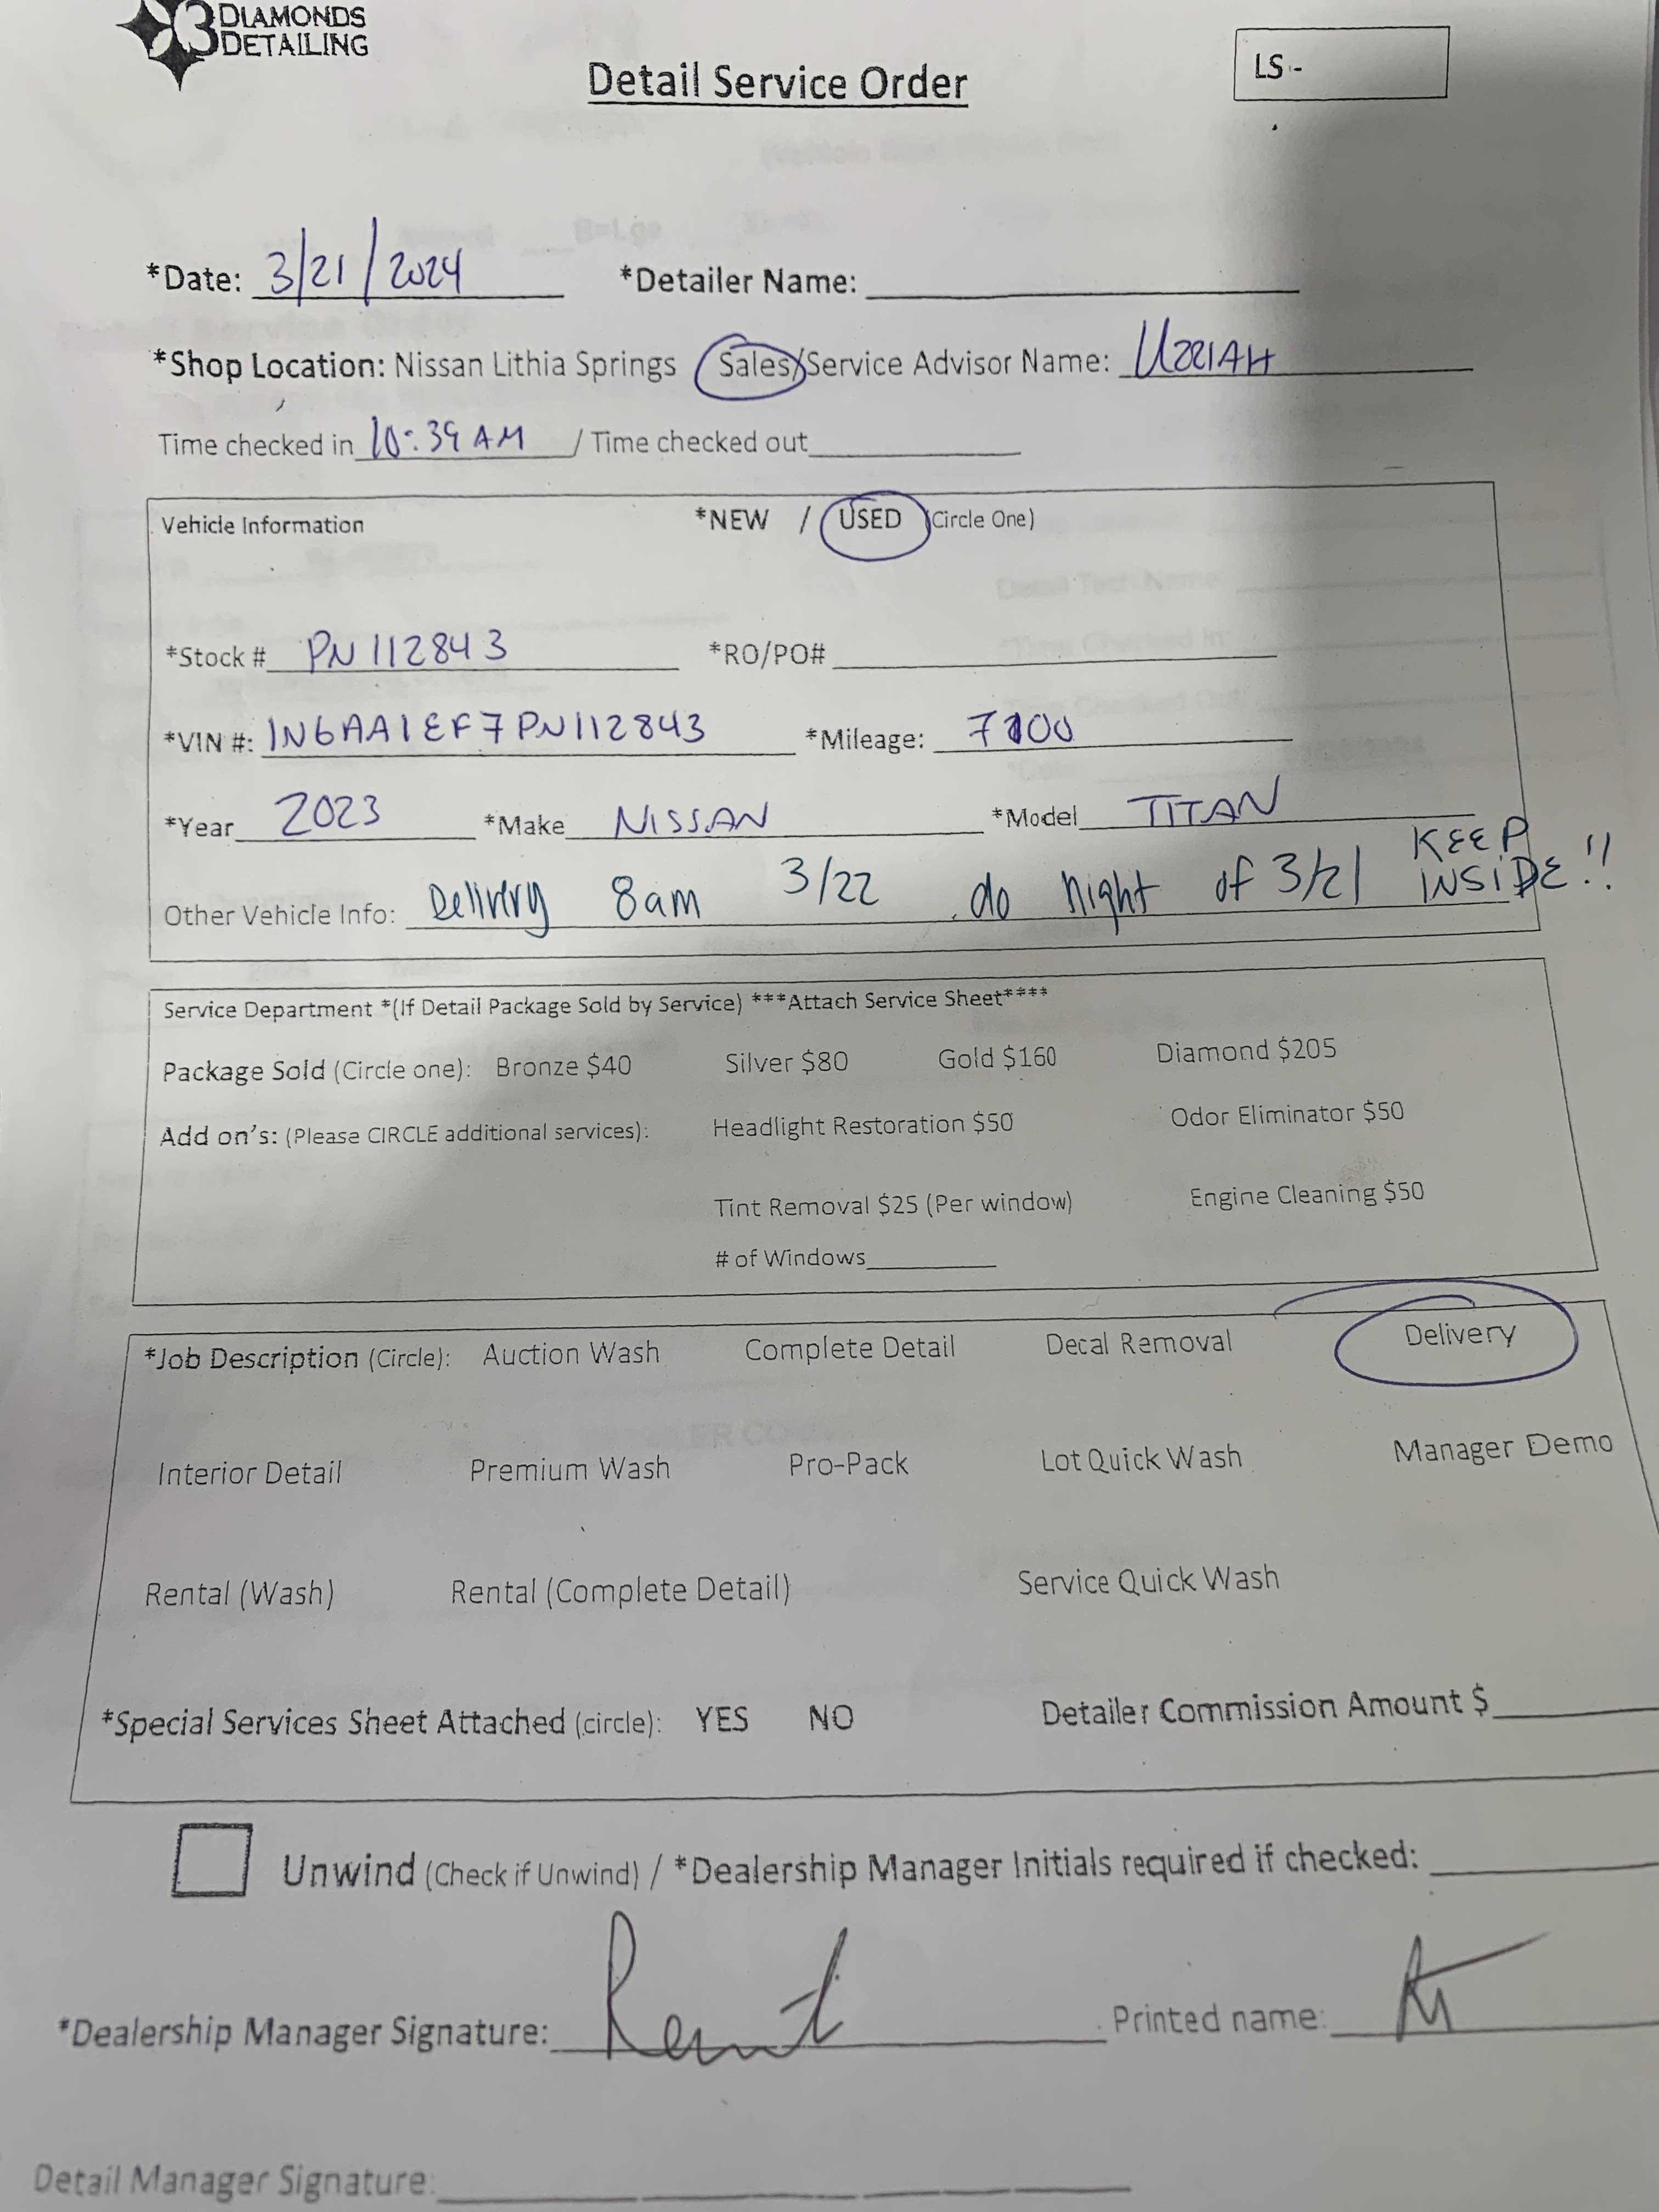 3 DIAMONDS
DETAILING
Detail Service Order
LS -
*Date: 3/21/2024 *Detailer Name:
*Shop Location: Nissan Lithia Springs Sales/Service Advisor Name: UZZIAH
Time checked in 10:39 AM / Time checked out
Vehicle Information *NEW / USED (Circle One)
*Stock # PN112843 *RO/PO#
*VIN #: 1N6AA1EF7PN112843 *Mileage: 7100
*Year 2023 *Make NISSAN *Model TITAN
Other Vehicle Info: Delivery 8am 3/22 do night of 3/21 KEEP INSIDE!!
Service Department *(If Detail Package Sold by Service) ***Attach Service Sheet****
Package Sold (Circle one): Bronze $40 Silver $80 Gold $160 Diamond $205
Add on's: (Please CIRCLE additional services): Headlight Restoration $50 Odor Eliminator $50
Tint Removal $25 (Per window) Engine Cleaning $50
# of Windows
*Job Description (Circle): Auction Wash Complete Detail Decal Removal Delivery
Interior Detail Premium Wash Pro-Pack Lot Quick Wash Manager Demo
Rental (Wash) Rental (Complete Detail) Service Quick Wash
*Special Services Sheet Attached (circle): YES NO Detailer Commission Amount $
Unwind (Check if Unwind) / *Dealership Manager Initials required if checked:
*Dealership Manager Signature: Printed name:
Detail Manager Signature: